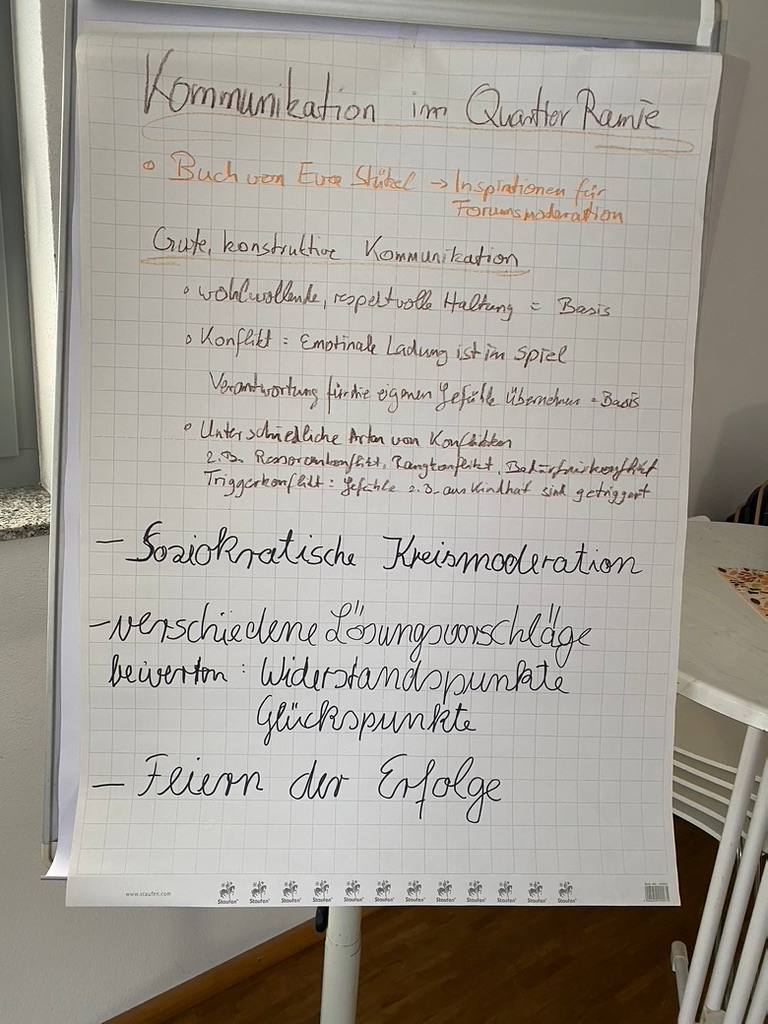 Kommunikation im Quartier Ramie
• Buch von Eva Stützel → Inspirationen für
Forumsmoderation
Gute, konstruktive Kommunikation
• wohlwollende, respektvolle Haltung = Basis
• Konflikt = Emotinale Ladung ist im Spiel
Verantwortung für die eigenen Gefühle übernehmen = Basis
• Unterschiedliche Arten von Konflikten
z.B. Ressourcenkonflikt, Rangkonflikt, Bedürfniskonflikt
Triggerkonflikt: Gefühle z.B. aus Kindheit sind getriggert
– Soziokratische Kreismoderation
– verschiedene Lösungsvorschläge
bewerten: Widerstandspunkte
Glückspunkte
– Feiern der Erfolge
www.staufen.com
Staufen Staufen Staufen Staufen Staufen Staufen Staufen Staufen Staufen Staufen Staufen Staufen